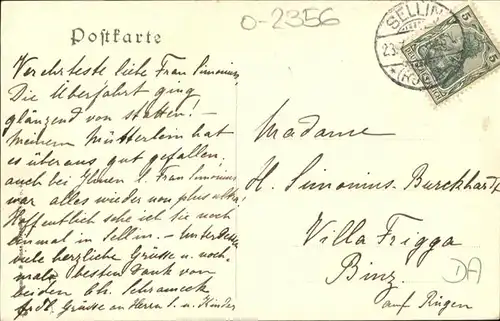 O-2356
Postkarte
SELLIN
23.
5
Verehrteste liebe Frau Simonius,
Die Überfahrt ging
glänzend von statten! –
meinem Mütterlein hat
es überaus gut gefallen.
auch bei Ihnen l. Frau Simonius
war alles wieder non plus ultra!
Hoffentlich sehe ich Sie noch
einmal in Sellin. – Unterdessen
viele herzliche Grüsse u. noch-
mals besten Dank von
beiden Ch. Schrameck
Grüsse an Herrn S. u. Kinder
Madame
H. Simonius-Burckhardt
Villa Frigga
Binz
auf Rügen
DA